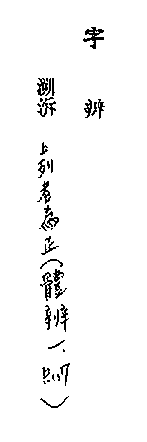 字辨
溯泝 上列者為正(體辨一、P.117)